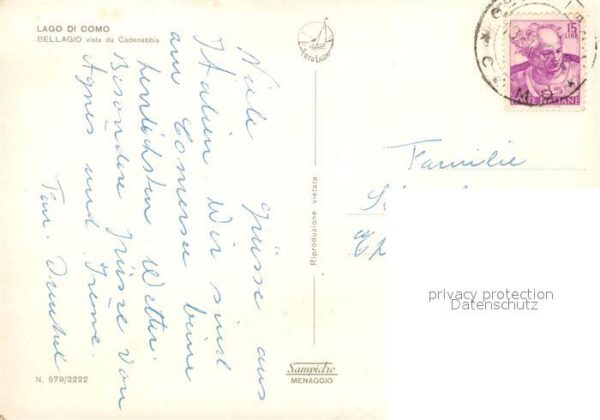 LAGO DI COMO
BELLAGIO vista da Cadenabbia
FOTO LAGHI
15 LIRE
POSTE ITALIANE
COMO
Viele Grüsse aus
Italien. Wir sind
am Comersee beim
herrlichsten Wetter.
Besondere Grüsse von
Agnes und Irene.
Fam.
Familie
Riproduzione vietata
privacy protection
Datenschutz
Sampietro
MENAGGIO
N. 579/2222